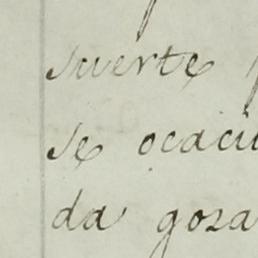 suerte
se ocaci
da goza